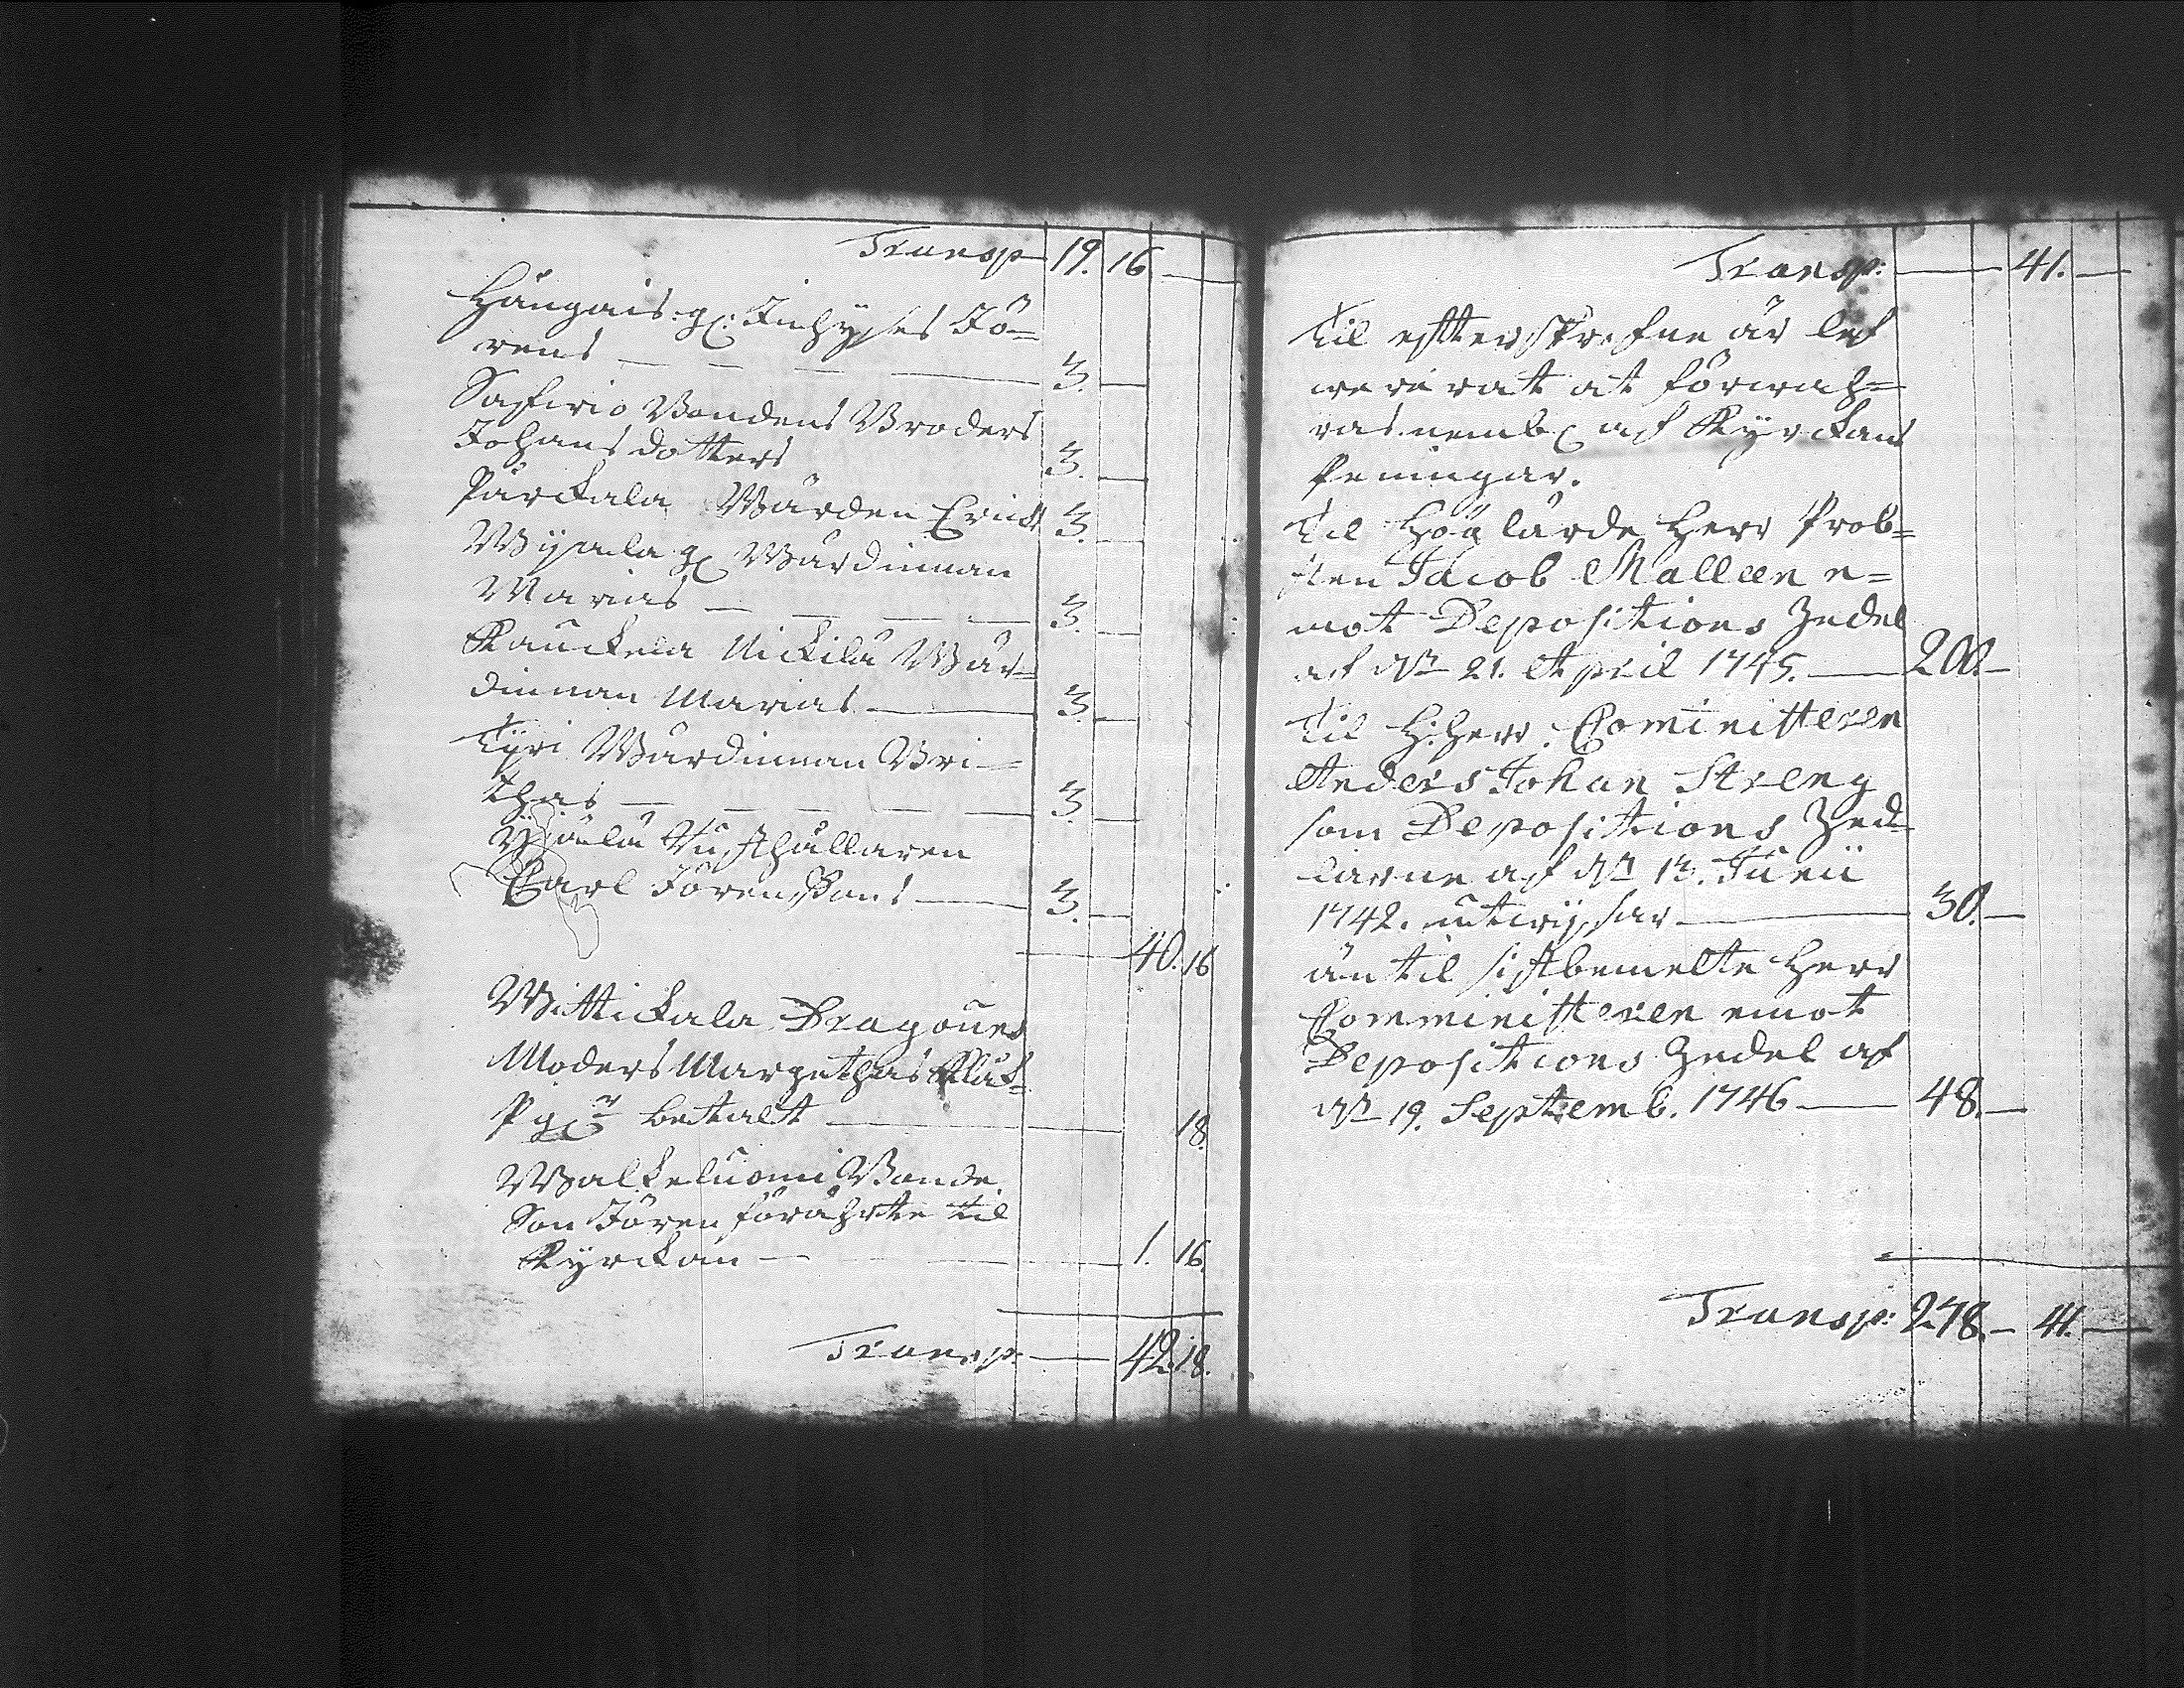 Transp 19. 16 —
Hängais: g: Inhyses Jö=
rens — — — — 3. —
Bondens Broders
Johans dotters 3. —
Parckala Wärden Erich 3. —
Wärdinnan
Marias — — — — 3. —
Kauckela Nickilä Wär=
dinnan Marias — 3. —
Tyri Wärdinnan Bri=
thas — — — — 3. —
Rusthållaren
Carl Jörenssons — 3. —
— 40. 16
Wittickala Dragouns
Moders Margethas
betalt — 18.
Walkeluomi Bonde
Son Jören förährte til
Kyrckan — 1. 16.
Transp: — 42. 18.
Transp: — 41. —
Til effterskrefne är lef
wererat at förwah=
ras nembl af Kyrckans
Peningar.
Til Höglärde Herr Prob=
sten Jacob Malleen e=
mot Depositions Zedel
af d 21. April 1745. — 200. —
Til H: Herr Cominitteren
Anders Johan Streng
som Depositions Zed=
larne af d 13. Junii
1742. utwijsar — 30. —
än til sistbemelte Herr
Comministeren emot
Depositions Zedel af
d 19. Septemb. 1746 — 48. —
Transp: 278. — 41. —